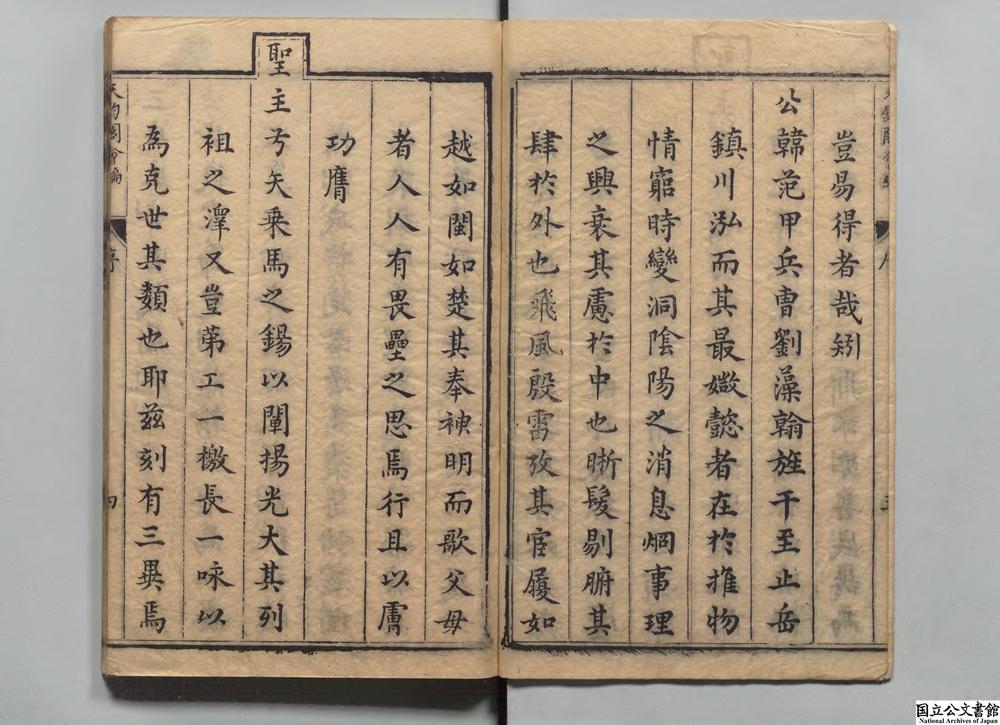 豈易得者哉矧
公韓范甲兵曹劉藻翰旌干至止岳
鎮川泓而其最媺懿者在於推物
情窮時變洞陰陽之消息烱事理
之興衰其慮於中也晣髮剔腑其
肆於外也飛風殷雷攷其官履如
越如閩如楚其奉神明而歌父母
者人人有畏壘之思焉行且以膚
功膺
聖
主兮矢乗馬之錫以闡揚光大其列
祖之澤又豈第工一檄長一咏以
為克世其類也耶兹刻有三異焉
序
四
国立公文書館
National Archives of Japan